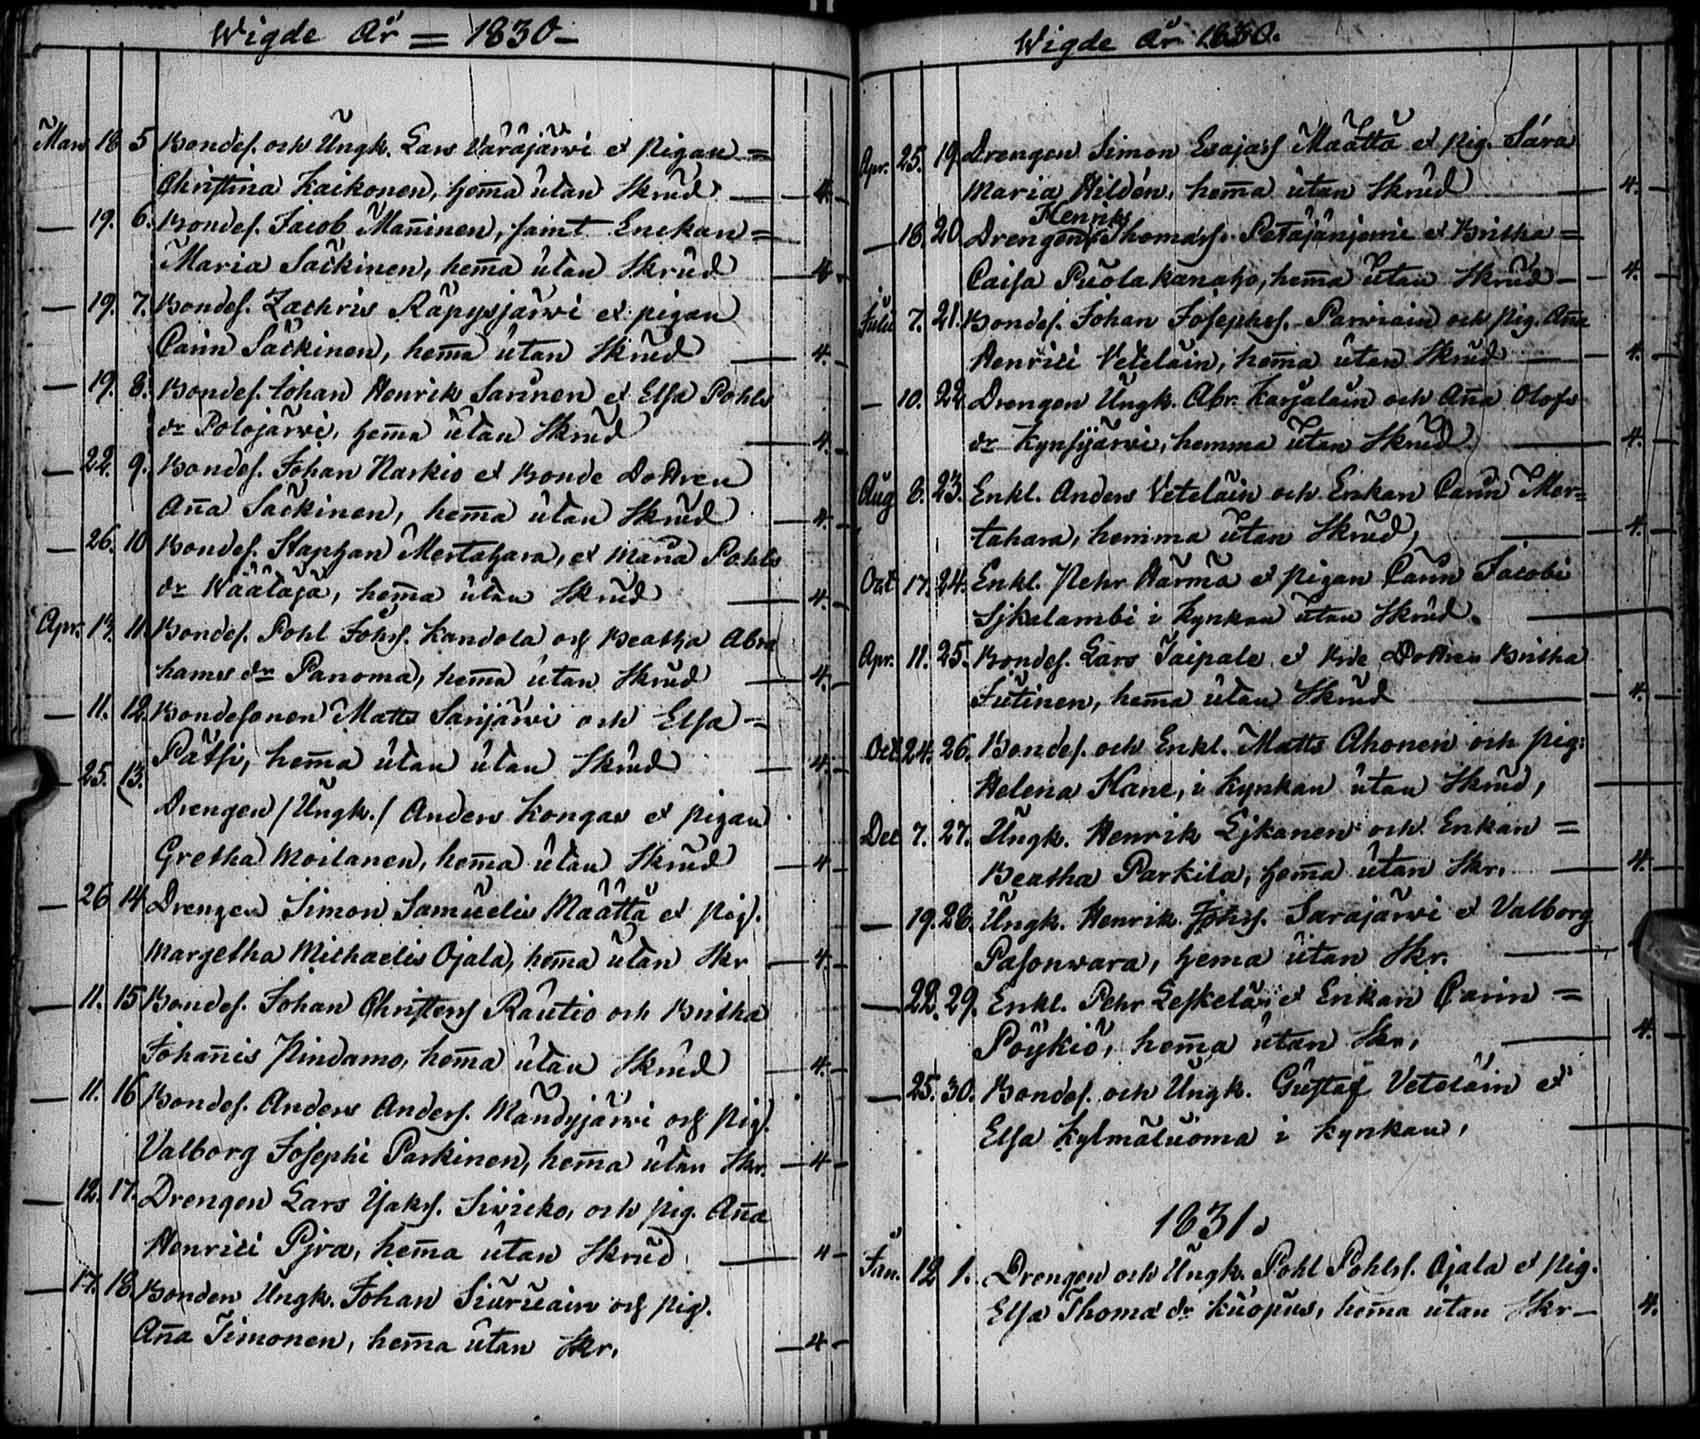 Wigde År = 1830 –
Mars 18 5 Bondes. och Ungk. Lars Väräjärvi et pigan =
Christina Kaikonen, hem̄a utan Skrud — 4. –
— 19. 6. Bondes. Jacob Mañinen, samt Enckan =
Maria Säckinen, hem̄a utan Skrud — 4 –
— 19. 7. Bondes. Zachris Räpysjärvi et pigan
Carin Säckinen, hem̄a utan Skrud — 4. –
— 19. 8. Bondes. Johan Henrik Sarinen et Elsa Pohls
dr Polojärvi, hem̄a utan Skrud — 4. –
— 22. 9. Bondes. Johan Narkio et Bonde Dottren
Aña Säckinen, hem̄a utan Skrud — 4. –
— 26. 10 Bondes. Staphan Mertahara, et Maria Pohls
dr Wäätäjä, hem̄a utan Skrud — 4. –
Apr. 13. 11. Bondes. Pohl Johss. Kandola och Beatha Abra
hams dr Panoma, hem̄a utan Skrud — 4. –
— 11. 12. Bondesonen Matts Sarijärvi och Elsa =
Pätsi, hem̄a utan utan Skrud — 4. –
— 25. 13.
Drengen / Ungk. / Anders Kongas et pigan
Gretha Moilanen, hem̄a utan Skrud — 4 –
— 26 14 Drengen Simon Samuelis Määttä et pig.
Margetha Michaelis Ojala, hem̄a utan Skr — 4. –
— 11. 15 Bondes. Johan Christerss Rautio och Britha
Johañis Pindamo, hem̄a utan Skrud — 4. –
— 11. 16 Bondes. Anders Anderss. Mändyjärvi och pig.
Valborg Josephi Parkinen, hem̄a utan Skr. — 4 –
— 12. 17. Drengen Lars Isaks. Sivicko, och pig. Aña
Henrici Pjra, hem̄a utan Skrud — 4 –
— 17. 18. Bonden Ungk. Johan Siuruain och pig.
Aña Timonen, hem̄a utan Skr. — 4 –
Wigde År 1830.
Apr. 25. 19. Drengen Simon Esajass Määttä et pig. Sara
Maria Hildén, hem̄a utan Skrud — 4. –
Henriks
— 18. 20. Drengen Thomass. Petäjäniemi et Britha =
Caisa Puolakanaho, hem̄a utan Skrud – 4. –
Julii 7. 21. Bondes. Johan Josephss. Parviain och pig. Aña
Henrici Veteläin, hem̄a utan Skrud — 4. –
— 10. 22. Drengen Ungk. Abr. Karjalain och Aña Olofs
dr Kynsijärvi, hemma utan Skrud. — 4. –
Aug 8. 23. Enkl. Anders Veteläin och Enkan Carin Mer=
tahara, hemma utan Skrud, — 4. –
Oct 17. 24. Enkl. Pehr Härmä et pigan Carin Jacobi
Sjkalambi i Kyrkan utan Skrud. —
Apr. 11. 25. Bondes. Lars Taipale et Bde Dottren Britha
Jutinen, hem̄a utan Skrud — 4. –
Oct 24. 26. Bondes. och Enkl. Matts Ahonen och pig:
Helena Kane, i Kyrkan utan Skrud, —
Dec 7. 27. Ungk. Henrik Ljkanen och Enkan =
Beatha Parkila, hem̄a utan Skr. — 4. –
— 19. 28. Ungk. Henrik Johss. Sarajärvi et Valborg
Pasonvara, hema utan Skr. —
— 22. 29. Enkl. Pehr Leskeläin et Enkan Carin =
Pöykiö, hem̄a utan Skr. — 4. –
— 25. 30. Bondes. och Ungk. Gustaf Veteläin et
Elsa Kylmäluoma i Kyrkan, —
1831.
Jan. 12 1. Drengen och Ungk. Pohl Pohlss. Ojala et pig.
Elsa Thomæ dr Kuopus, hem̄a utan Skr – 4.